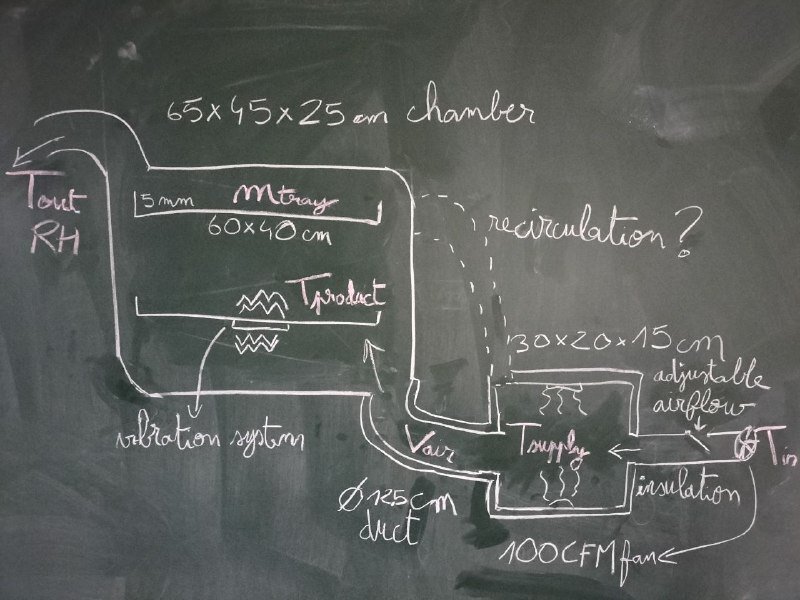 65x45x25cm chamber
Tout
RH
5mm
mtray
60x40cm
recirculation?
Tproduct
30x20x15cm
adjustable
airflow
vibration system
Vair
Tsupply
Tin
Ø125cm
duct
insulation
100CFM fan